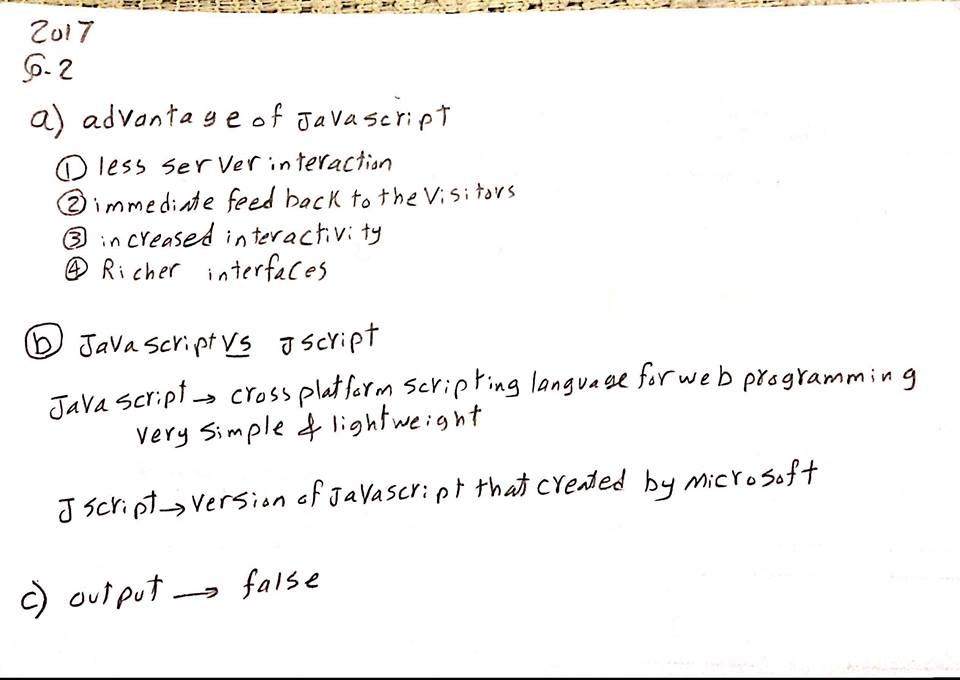 2017
Q-2
a) advantage of Javascript
① less server interaction
② immediate feed back to the visitors
③ increased interactivity
④ Richer interfaces
ⓑ Javascript vs Jscript
Javascript → cross platform scripting language for web programming
very simple & lightweight
Jscript → version of Javascript that created by microsoft
c) output → false